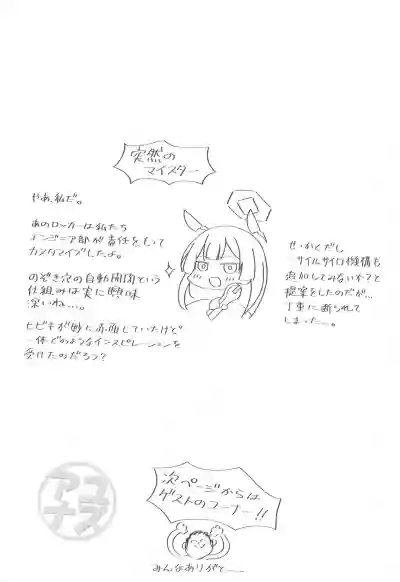 突然の
マイスター
やあ、私だ。
あのロッカーは私たち
エンジニア部が責任をもって
カスタマイズしたよ。
のぞき穴の自動開閉という
仕組みは実に興味
深いね…。
ヒビキが妙に赤面していたけど
一体どのようなインスピレーションを
受けたのだろう?
せっかくだし
サイルサイロ機構も
追加してみないか?と
提案をしたのだが…
丁重に断られて
しまった…。
次ページからは
ゲストのコーナー!!
みんなありがとー
アユ
ナズ